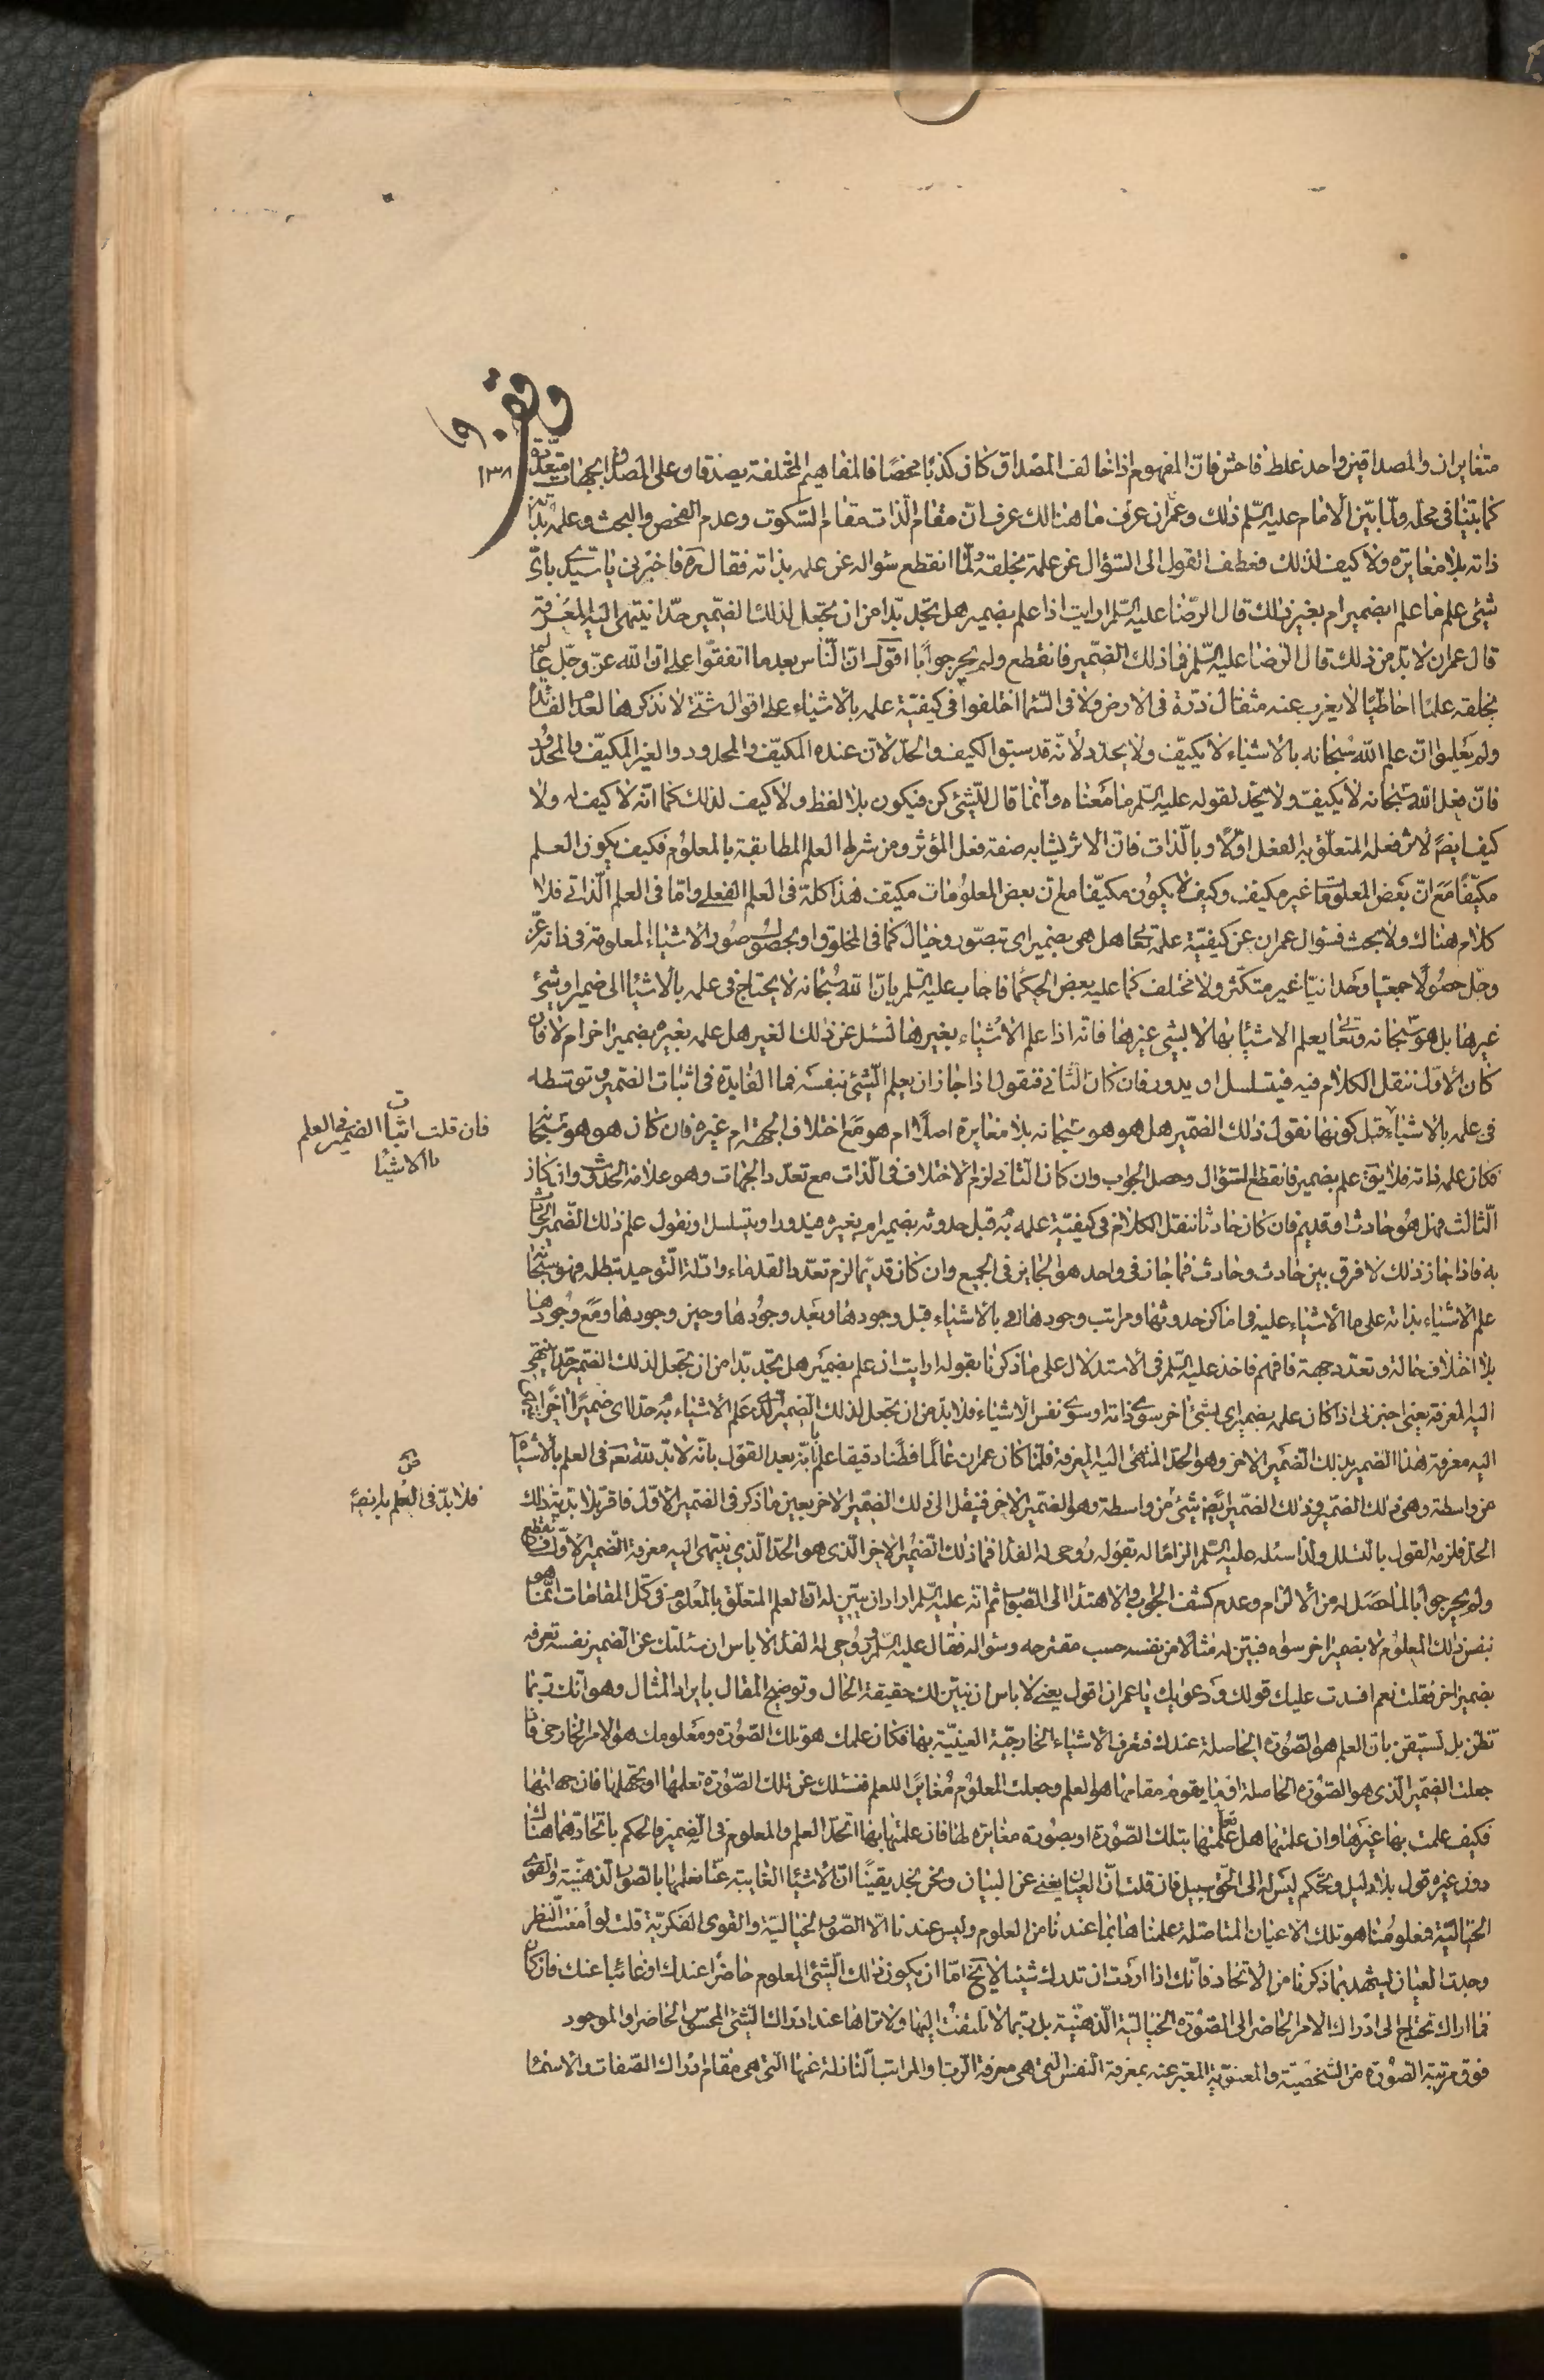 وقف
١٣٨
متغايران والمصداقين واحد غلط فاحش فان المفهوم اذا خالف المصداق كان كذبا محضا فالمفاهيم المختلفة يصدقان على المصداق بجهات متعددة
كما بيّنا فى محله ولما بيّن الامام عليه السّلم ذلك وعمران عرف ما هنالك عرف ان مقام الذات مقام السكوت وعدم الفحص والبحث وعلمه بذاته
ذاته بلا مغايرة ولا كيف لذلك فعطف القول الى السؤال عن علمه بخلقه ولمّا انقطع سؤاله عن علمه بذاته فقال ره فاخبرنى يا سيدى باىّ
شيئ علم ما علم ابضمير ام بغير ذلك قال الرّضا عليه السّلم ارايت اذا علم بضمير هل تجد بدّا من ان تجعل لذلك الضمير حدّا ينتهى اليه المعرفة
قال عمران لا بدّ من ذلك قال الرضا عليه السّلم فما ذلك الضمير فانقطع ولم يحر جوابا اقول ان الناس بعد ما اتفقوا على ان اللّه عزّ وجلّ عالم
بخلقه علما احاطيّا لا يعزب عنه مثقال ذرة فى الارض ولا فى السّما اختلفوا فى كيفيّة علمه بالاشياء على اقوال شتّى لا نذكرها لعدم الفائدة
ولم يعلموا ان علم اللّه سبحانه بالاشياء لا يكيّف ولا يحدّد لانّه قد سبق الكيف والحدّ لان عنده المكيّف والمحدود والغير المكيّف والمحدود
فان فعل اللّه سبحانه لا يكيف ولا يحدّ لقوله عليه السّلم ما معناه وانما قال للشيئ كن فيكون بلا لفظ ولا كيف لذلك كما انه لا كيف له ولا
كيف ايضا لاثر فعله المتعلّق به الفعل اوّلا وبالذات فان الاثر يشابه صفة فعل المؤثر ومن شرط العلم المطابقة بالمعلوم فكيف يكون العلم
مكيّفا مع انّ بعض المعلومات غير مكيف وكيف لا يكون مكيّفا مع ان بعض المعلومات مكيف هذا كله فى العلم الفعلى وامّا فى العلم الذاتى فلا
كلام هناك ولا بحث فسؤال عمران عن كيفيّة علمه تعا هل هى بضمير اى تصوّر وخيال كما فى المخلوق او بحصول صور الاشياء المعلومة فى ذاته عزّ
وجلّ حصولا جمعيا وحدانيّا غير متكثر ولا مختلف كما عليه بعض الحكما فاجاب عليه السّلم بانّ اللّه سبحانه لا يحتاج فى علمه بالاشيا الى ضمير او شيئ
غيرها بل هو سبحانه وتعا يعلم الاشيا بها لا بشيئ غيرها فانه اذا علم الاشياء بغيرها نسئل عن ذلك الغير هل علمه بغيره بضمير اخر ام لا فان
كان الاوّل ننقل الكلام فيه فيتسلسل او يدور فان كان الثانى فنقول اذا جاز ان يعلم الشيئ بنفسه فما الفايدة فى اثبات الضمير وتوسّطه
فى علمه بالاشياء قبل كونها نقول ذلك الضمير هل هو هو سبحانه بلا مغايرة اصلا ام هو مع اختلاف الجهة ام غيره فان كان هو هو سبحانه
فكان علمه ذاته فلا يقال علم بضمير فانقطع السؤال وحصل الجواب وان كان الثانى لزم الاختلاف فى الذات مع تعدد الجهات وهو علامة الحدوث وان كان
الثالث فهل هو حادث او قديم فان كان حادثا ننقل الكلام فى كيفيّة علمه به قبل حدوثه بضمير ام بغيره فيدور او يتسلسل او نقول علم ذلك الضمير الحادث
به فاذا جاز ذلك لا فرق بين حادث وحادث فما جاز فى واحد هو الجايز فى الجميع وان كان قديما لزم تعدد القدماء وادلة التوحيد تبطله فهو سبحانه
علم الاشياء بذاته على ما الاشياء عليه فى اماكن حدوثها ومراتب وجودها بالاشياء قبل وجودها وبعد وجودها وحين وجودها ومع وجودها
بلا اختلاف حالة وتعدد جهة فافهم فاخذ عليه السّلم فى الاستدلال على ما ذكرنا بقوله ارايت اذ علم بضمير هل تجد بدا من ان تجعل لذلك الضمير حدا ينتهى
اليه المعرفة يعنى اخبرنى اذا كان علمه بضمير اى بشيئ اخر سوى ذاته او سوى نفس الاشياء فلا بدّ من ان تجعل لذلك الضمير الذى علم الاشياء به حدا اى ضميرا اخر
اليه معرفة هذا الضمير بذلك الضمير الاخر وهو الحد المنتهى اليه المعرفة فلمّا كان عمران عالما فطنا دقيقا علم بانّه بعد القول بانّه لا بدّ للّه تعا فى العلم بالاشيا
من واسطة وهى ذلك الضمير وذلك الضمير ايضا شيئ من واسطة وهو الضمير الاخر فننقل الى ذلك الضمير الاخر بعين ما ذكر فى الضمير الاوّل فاقر بلا بدّية ذلك
الحدّ فلزمه القول بالتسلسل ولذا سئله عليه السّلم الزاما له بقوله روحى له الفداء فما ذلك الضمير الاخر الذى هو الحدّ الذى ينتهى اليه معرفة الضمير الاوّل فانقطع
ولم يحر جوابا لما حصل له من الالزام وعدم كشف الجواب والاهتداء الى الصواب ثم انّه عليه السّلم اراد ان يبيّن له ان العلم المتعلّق بالمعلوم فى كلّ المقامات انما هو
بنفس ذلك المعلوم لا بضمير اخر سواه فبيّن له مثالا من نفسه حسب مقترحه وسؤاله فقال عليه السّلم روحى له الفداء لا باس ان سئلتك عن الضمير نفسه تعرفه
بضمير اخر فقلت نعم افسدت عليك قولك ودعويك يا عمران اقول يعنى لا باس ان نبيّن لك حقيقة الحال وتوضيح المقال بايراد المثال وهو انّك ربّما
تظن بل تستيقن بان العلم هو الصّورة الحاصلة عندك فتعرف الاشياء الخارجيّة العينيّة بها فكان علمك هو تلك الصّورة ومعلومك هو الامر الخارجى فان
جعلت الضمير الذى هو الصّورة الحاصلة او ما يقوم مقامها هو العلم وجعلت المعلوم مغايرا للعلم فنسئلك عن تلك الصّورة تعلمها او تجهلها فان جهلتها
فكيف علمت بها غيرها وان علمتها هل علمتها بتلك الصّورة او بصورة مغايرة لها فان علمتها بها اتّحد العلم والمعلوم فى الضمير فالحكم باتّحادهما هنالك
دون غيره قول بلا دليل وتحكّم ليس له الى الحق سبيل فان قلت انّ العيان يغنى عن البيان ونحن نجد يقينا انّ الاشيا الغايبة عنّا نعلمها بالصور الذهنيّة والقوى
الخياليّة فمعلومنا هو تلك الاعيان المتاصلة علمناها بما عندنا من العلوم وليس عندنا الّا الصّور الخياليّة والقوى الفكريّة قلت لو امعنت النظر
وجدت العيان يشهد بما ذكرنا من الاتحاد فانّك اذا اردت ان تدرك شيئا لا يخ امّا ان يكون ذلك الشيئ المعلوم حاضرا عندك او غائبا عنك فان كان
فما اراك تحتاج الى ادراك الامر الحاضر الى الصّورة الخياليّة الذهنيّة بل ربّما لا تلتفت اليها ولا تراها عند ادراك الشيئ المحسوس الحاضر او الموجود
فوق مرتبة الصّورة من الشخصيّة والمعنويّة المعبّر عنه بمعرفة النفس التى هى معرفة الربّ او المراتب النازلة عنها التى هى مقام ادراك الصّفات والاسما
فان قلت اثبات الضمير فى العلم
بالاشيا
فلا بدّ فى العلم به ايضا